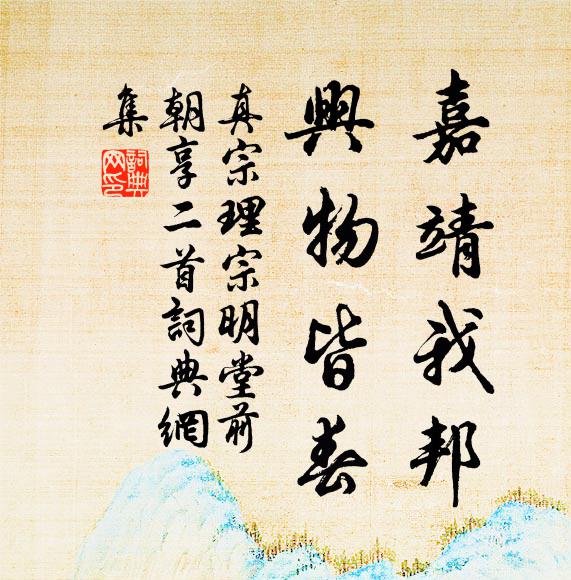 嘉靖我邦
興物皆春
真宗理宗明堂前
朝享二首詞典網
集
詞典網印